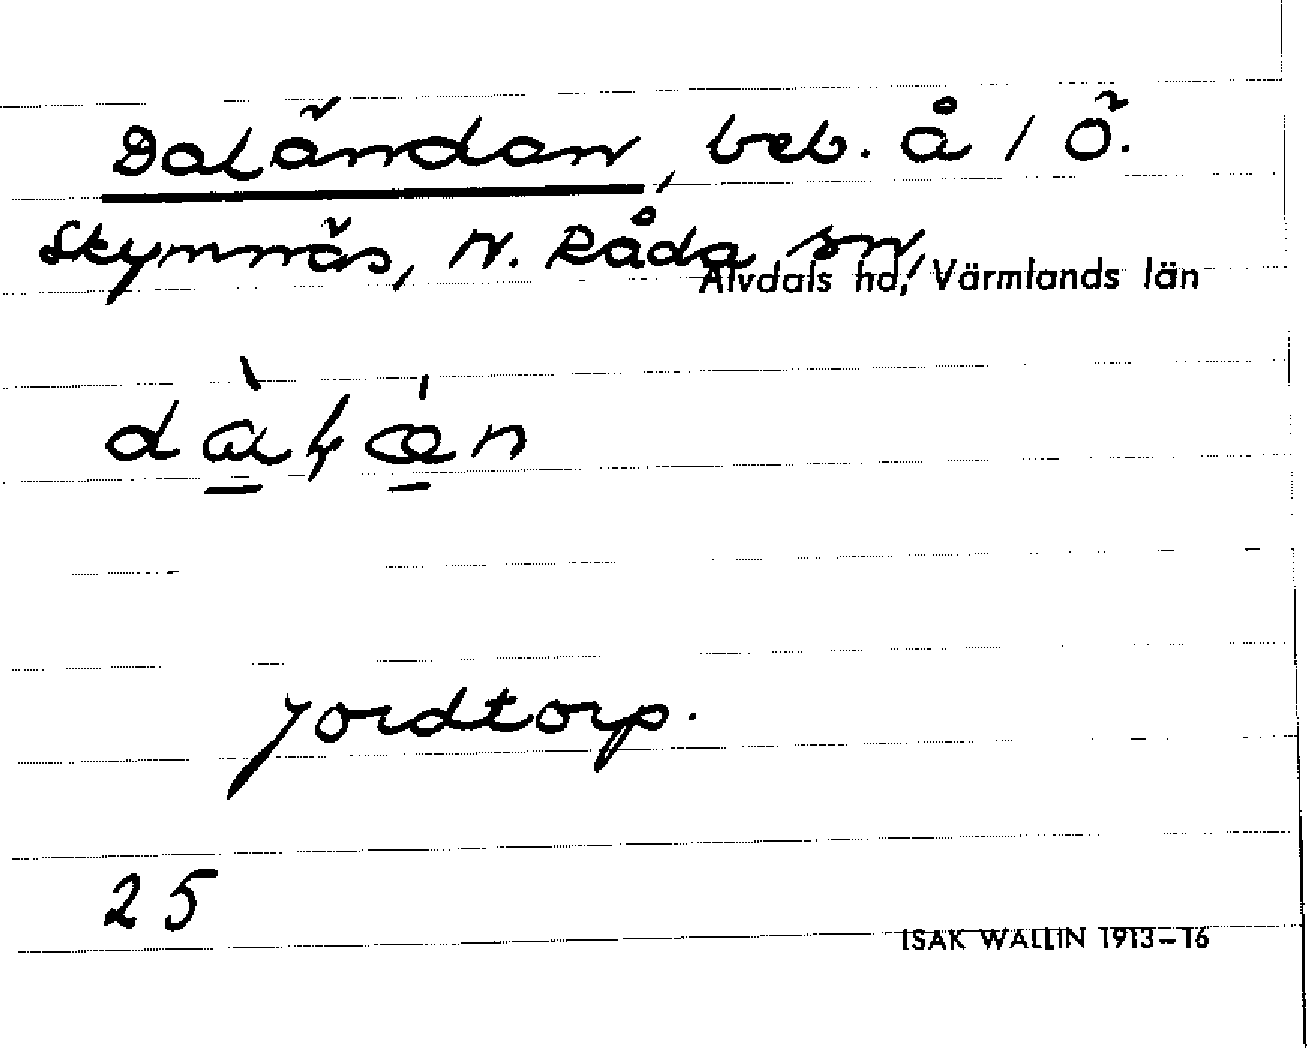 Daländan, beb. å 1 Ö.
Skymnäs, N. Råda sn,
Älvdals hd, Värmlands län
jordtorp.
25
ISAK WALLIN 1913–16